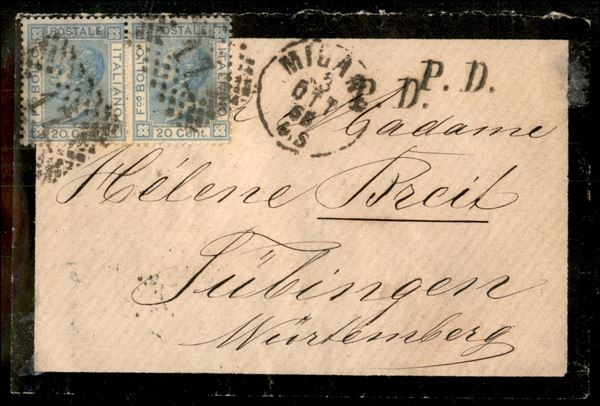 POSTALE ITALIANO Fco BOLLO 20 Cent.
POSTALE ITALIANO Fco BOLLO 20 Cent.
MILANO
3
OTT
68
4 S
P. D.
P. D.
Madame
Hélène Breit
Tübingen
Würtemberg